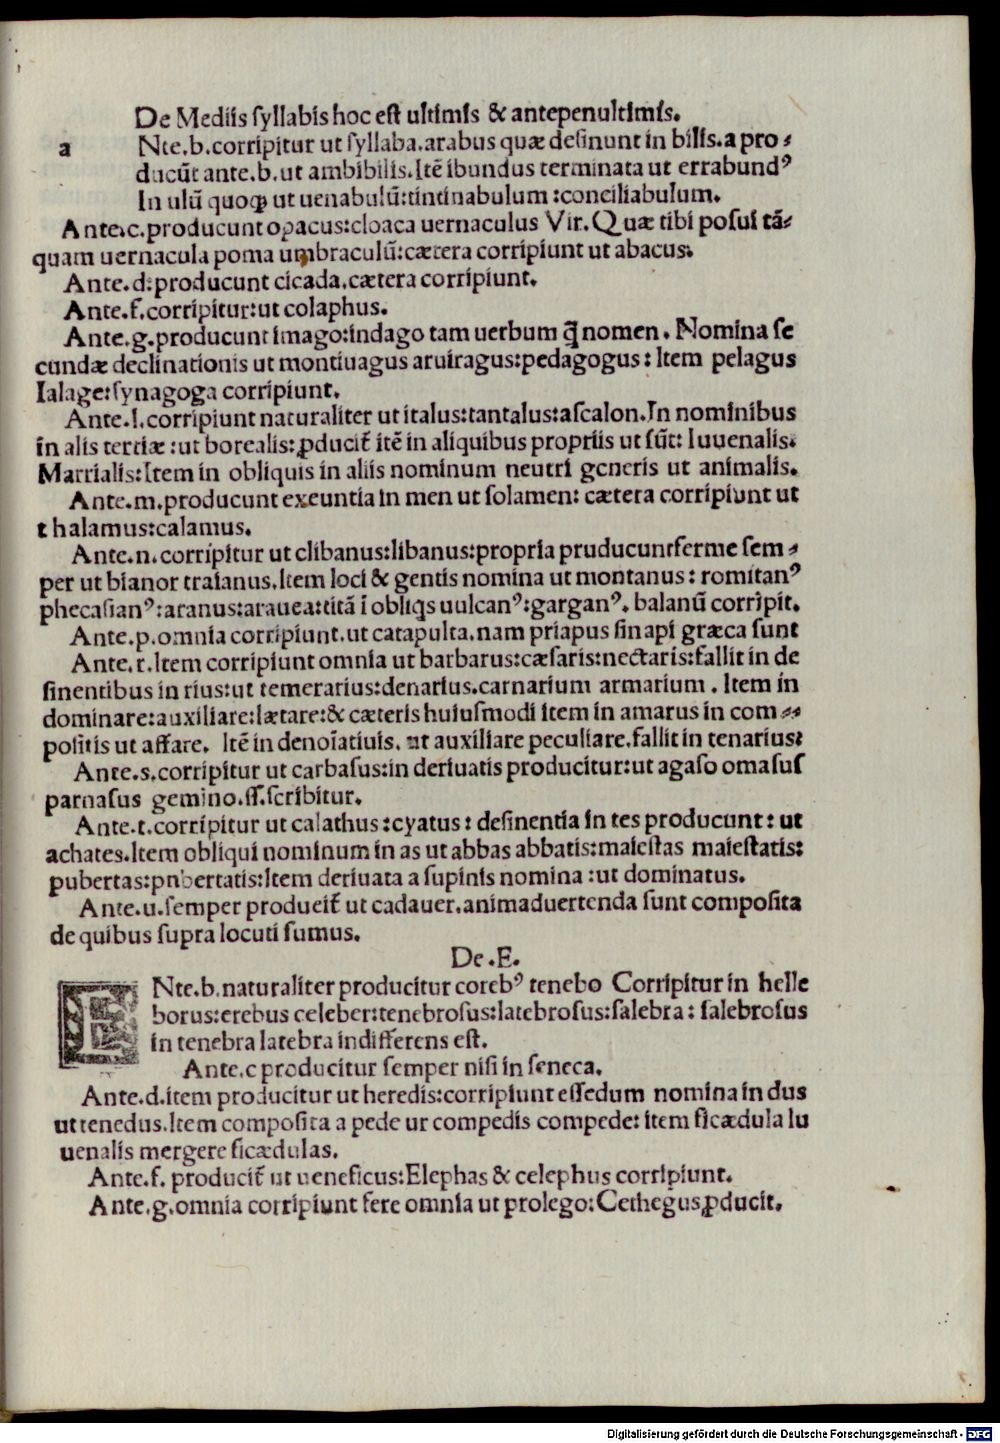 De Mediis ſyllabis hoc eſt ultimis & antepenultimis.
a Nte.b.corripitur ut ſyllaba.arabus quæ deſinunt in bilis.a pro⸗
ducūt ante.b.ut ambibilis.Itē ibundus terminata ut errabundꝰ
In ulū quoqꝫ ut uenabulū:tintinabulum:conciliabulum.
Ante.c.producunt opacus:cloaca uernaculus Vir.Quæ tibi poſui tā⸗
quam uernacula poma umbraculū:cætera corripiunt ut abacus:
Ante.d:producunt cicada.cætera corripiunt.
Ante.f.corripitur:ut colaphus.
Ante.g.producunt imago:indago tam uerbum q̄ nomen. Nomina ſe
cundæ declinationis ut montiuagus aruiragus:pedagogus: Item pelagus
Ialage:ſynagoga corripiunt.
Ante.l.corripiunt naturaliter ut italus:tantalus:aſcalon.In nominibus
in alis tertiæ:ut borealis:ꝓducit̄ itē in aliquibus propriis ut ſūt: Iuuenalis:
Martialis:Item in obliquis in aliis nominum neutri generis ut animalis.
Ante.m.producunt exeuntia in men ut ſolamen: cætera corripiunt ut
thalamus:calamus.
Ante.n.corripitur ut clibanus:libanus:propria pruducunt ferme ſem⸗
per ut bianor traianus.Item loci & gentis nomina ut montanus: romitanꝰ
phecaſianꝰ:aranus:arauea:titā ī obliq̨s uulcanꝰ:garganꝰ. balanū corripit.
Ante.p.omnia corripiunt.ut catapulta.nam priapus ſinapi græca ſunt
Ante.r.Item corripiunt omnia ut barbarus:cæſaris:nectaris:fallit in de
ſinentibus in rius:ut temerarius:denarius.carnarium armarium. Item in
dominare:auxiliare:lætare:& cæteris huiuſmodi item in amarus in com⸗
poſitis ut affare. Itē in denoīatiuis. ut auxiliare peculiare.fallit in tenarius:
Ante.s.corripitur ut carbaſus:in deriuatis producitur:ut agaſo omaſus
parnaſus gemino.ſſ.ſcribitur.
Ante.t.corripitur ut calathus:cyatus: deſinentia in tes producunt: ut
achates.Item obliqui nominum in as ut abbas abbatis:maieſtas maieſtatis:
pubertas:pnbertatis:Item deriuata a ſupinis nomina:ut dominatus.
Ante.u.ſemper produeit̄ ut cadauer.animaduertenda ſunt compoſita
de quibus ſupra locuti ſumus.
De.E.
E Nte.b.naturaliter producitur corebꝰ tenebo Corripitur in helle
borus:erebus celeber:tenebroſus:latebroſus:ſalebra: ſalebroſus
in tenebra latebra indifferens eſt.
Ante.c producitur ſemper niſi in ſeneca.
Ante.d.item producitur ut heredis:corripiunt eſſedum nomina in dus
ut tenedus.Item compoſita a pede ur compedis compede: item ficædula Iu
uenalis mergere ficædulas.
Ante.f. producit̄ ut ueneficus:Elephas & celephus corripiunt.
Ante.g.omnia corripiunt fere omnia ut prolego:Cethegus ꝓducit.
Digitalisierung gefördert durch die Deutsche Forschungsgemeinschaft - DFG